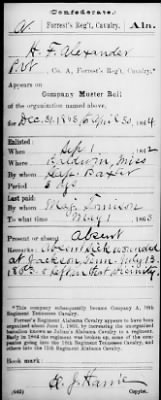 Confederate.
A. Forrest's Reg't, Cavalry. Ala.
H. F. Alexander
Pvt, Co. A, Forrest's Reg't, Cavalry.*
Appears on
Company Muster Roll
of the organization named above,
for Dec 31, 1863, & April 30, 1864.
Enlisted:
When Sep 1, 1862
Where Baldwin, Miss
By whom Capt. Baxter
Period 3 yrs
Last paid:
By whom Maj.
To what time May 1, 1863
Present or absent Absent
Remarks: Absent sick wounded
at Jackson, Tenn. July 13,
1863 & left in that vicinity.
*This company subsequently became Company A, 18th
Regiment Tennessee Cavalry.
Forrest's Regiment Alabama Cavalry appears to have been
organized about June 1, 1863, by increasing the unorganized
battalion known as Julian's Battalion Cavalry to a regiment.
Early in 1864 the regiment was broken up, some of the com-
panies going into the 18th Regiment Tennessee Cavalry, and
others into the 15th Regiment Alabama Cavalry.
Book mark
Copyist.
(642)